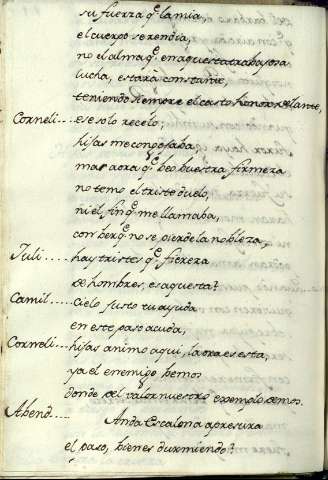 su fuerza q̃ la mia,
el cuerpo se rendia,
no el alma q̃ en aquesta trabajosa
lucha, estara constante,
teniendo siempre el casto honor delante,
Corneli... ese solo recelo,
hijas me congojaba,
mas aora q̃ beo buestra firmeza
no temo el triste duelo,
ni el fin q̃ me llamaba,
con ber q̃ no se pierde la nobleza,
Juli.... hay tristes q̃ fiereza
de hombres, es aquesta?
Camil.... Cielo justo tu ayuda
en este paso acuda,
Corneli... hijas animo aqui, la ora es esta,
ya el enemigo bemos
donde del valor nuestro exemplo demos.
Abend....
Anda Escalona apresura
el paso, bienes durmiendo?